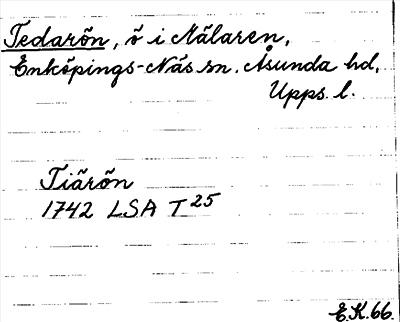 Tedarön, ö i Mälaren,
Enköpings-Näs sn. Åsunda hd,
Upps. l.
Tiärön
1742 LSA T 25
E.K.66.